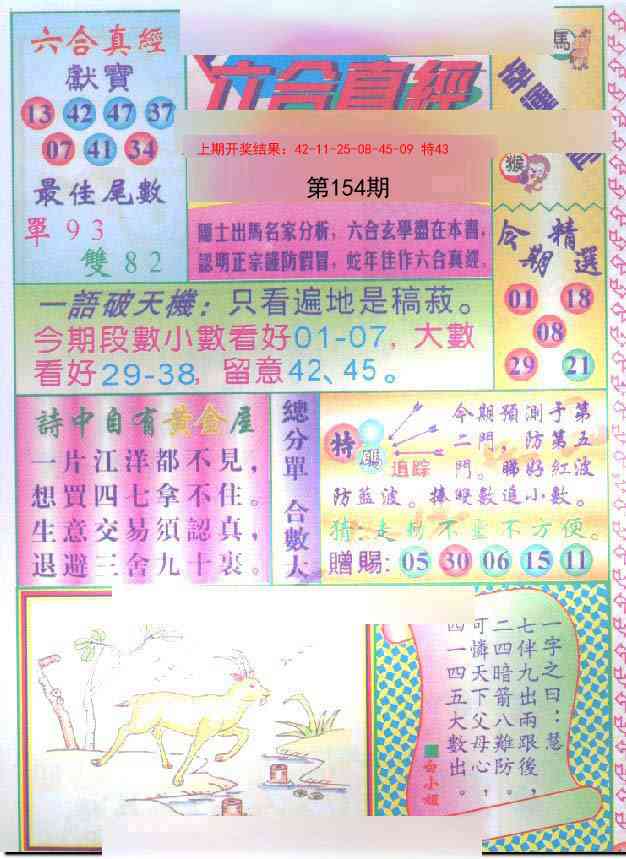 六合真經
獻寶
13 42 47 37
07 41 34
最佳尾數
單 9 3
雙 8 2
六合真經
上期开奖结果：42-11-25-08-45-09 特43
第154期
隱士出馬名家分析，六合玄學盡在本書，
認明正宗謹防假冒，蛇年佳作六合真經。
馬
猴
今期
精選
01 18
08
29 21
一語破天機：只看遍地是稿菽。
今期段數小數看好01-07，大數
看好29-38，留意42、45。
詩中自有黃金屋
一片江洋都不見，
想買四七拿不住。
生意交易須認真，
退避三舍九十裏。
總分單 合數大
特
碼
追踪
今期預測于第
二門，防第五
門。睇好紅波
防藍波。捧
數追小數。
猜:走
不
不方便。
贈賜: 05 30 06 15 11
一字之曰：慧
七伴九出兩跟後，
二四暗箭八難防。
可憐天下父母心，
四一四五大數出。
白小姐